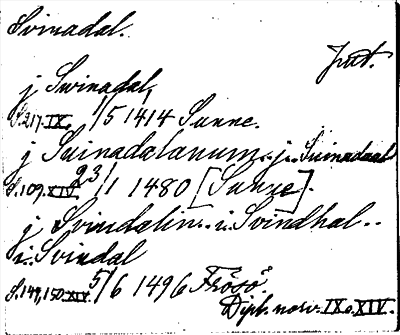 Svinadal.
Jmt.
j Swinadal,
S. 217. IX. 1/5 1414 Sunne.
j Suinadalanum.. j.. Suinadaal
S. 109. XIV. 23/1 1480 [Sunne].
j Svindalin.. i.. Svindhal..
i.. Svindal
S. 149, 150. XIV. 5/6 1496 Frösö.
Dipl. norv. IX o. XIV.